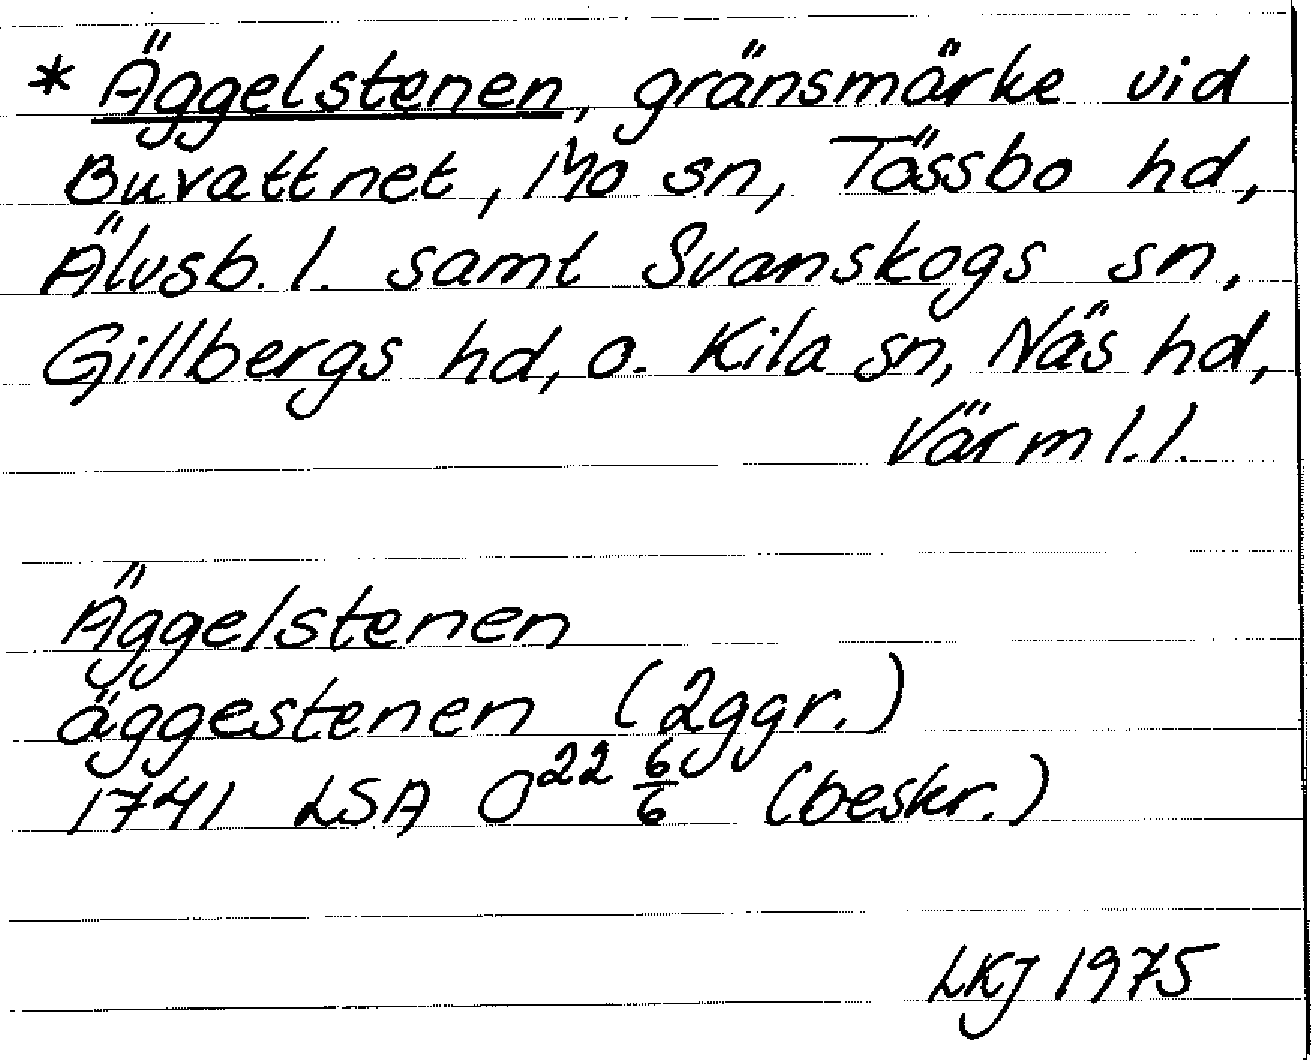 * Äggelstenen, gränsmärke vid
Buvattnet, Mo sn, Tössbo hd,
Älvsb. l. samt Svanskogs sn,
Gillbergs hd, o. Kila sn, Näs hd,
Värml. l.
Äggelstenen
äggestenen (2ggr.)
1741 LSA O²² 6/6 (beskr.)
LKJ 1975